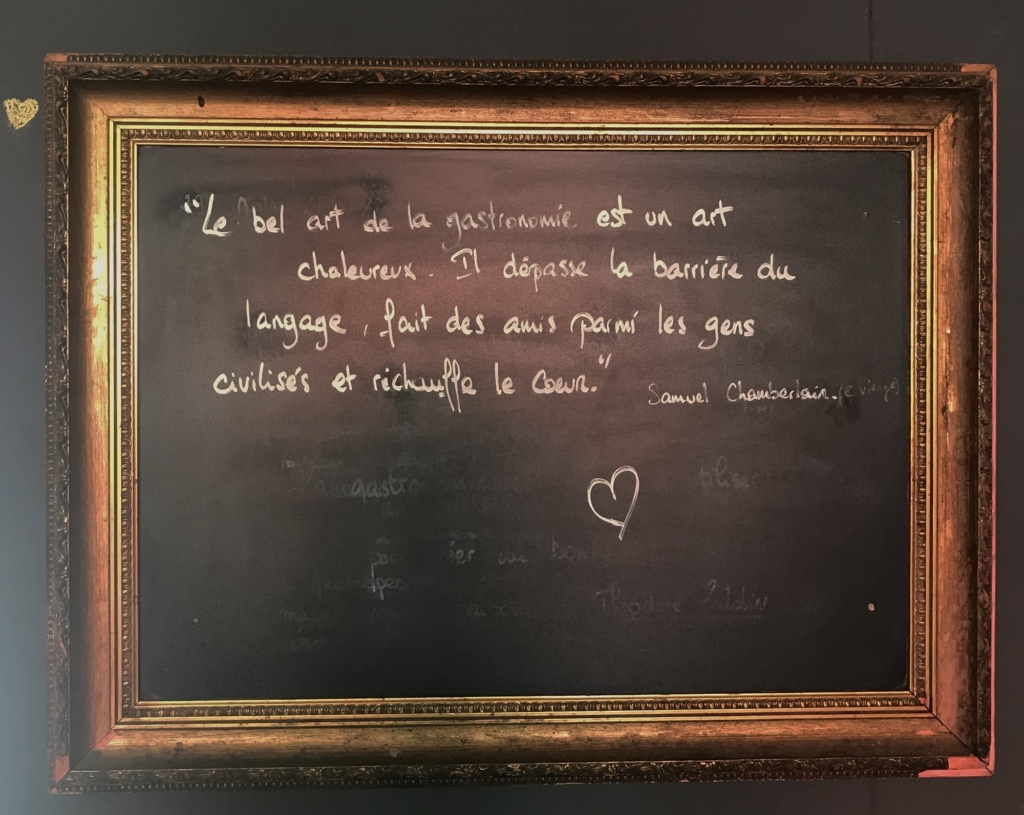 "Le bel art de la gastronomie est un art
chaleureux. Il dépasse la barrière du
langage, fait des amis parmi les gens
civilisés et réchauffe le Coeur."
Samuel Chamberlain.
gastro